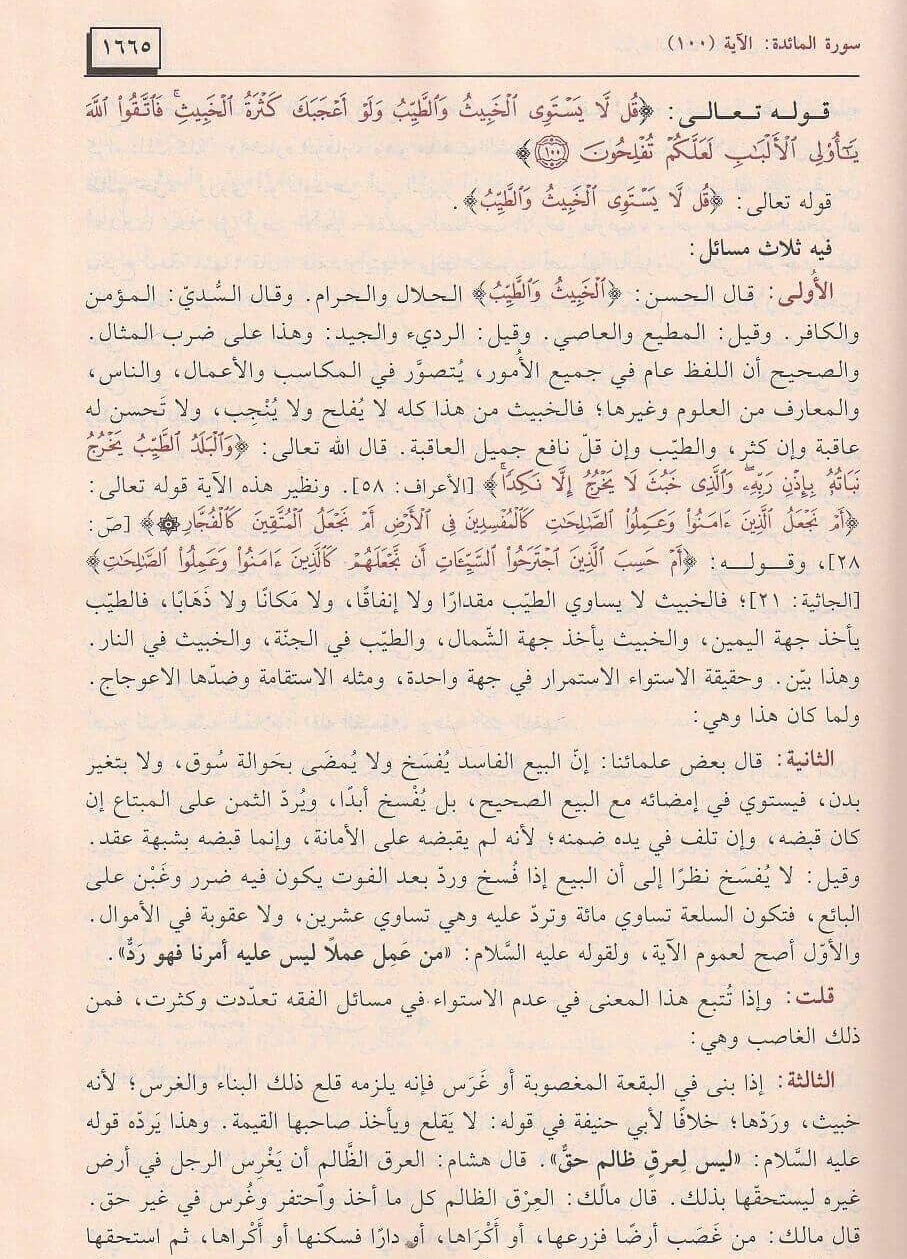 سورة المائدة: الآية (١٠٠)
١٦٦٥
قوله تعالى: ﴿قُل لَّا يَسْتَوِى ٱلْخَبِيثُ وَٱلطَّيِّبُ وَلَوْ أَعْجَبَكَ كَثْرَةُ ٱلْخَبِيثِ ۚ فَٱتَّقُوا۟ ٱللَّهَ
يَـٰٓأُو۟لِى ٱلْأَلْبَـٰبِ لَعَلَّكُمْ تُفْلِحُونَ ١٠٠﴾
قوله تعالى: ﴿قُل لَّا يَسْتَوِى ٱلْخَبِيثُ وَٱلطَّيِّبُ﴾.
فيه ثلاث مسائل:
الأُولى: قال الحسن: ﴿ٱلْخَبِيثُ وَٱلطَّيِّبُ﴾ الحلال والحرام. وقال السُّديّ: المؤمن
والكافر. وقيل: المطيع والعاصي. وقيل: الرديء والجيد: وهذا على ضرب المثال.
والصحيح أن اللفظ عام في جميع الأُمور، يُتصوَّر في المكاسب والأعمال، والناس،
والمعارف من العلوم وغيرها؛ فالخبيث من هذا كله لا يُفلح ولا يُنْجِب، ولا تَحسن له
عاقبة وإن كثر، والطيّب وإن قلّ نافع جميل العاقبة. قال الله تعالى: ﴿وَٱلْبَلَدُ ٱلطَّيِّبُ يَخْرُجُ
نَبَاتُهُۥ بِإِذْنِ رَبِّهِۦ ۖ وَٱلَّذِى خَبُثَ لَا يَخْرُجُ إِلَّا نَكِدًا ۚ﴾ [الأعراف: ٥٨]. ونظير هذه الآية قوله تعالى:
﴿أَمْ نَجْعَلُ ٱلَّذِينَ ءَامَنُوا۟ وَعَمِلُوا۟ ٱلصَّـٰلِحَـٰتِ كَٱلْمُفْسِدِينَ فِى ٱلْأَرْضِ أَمْ نَجْعَلُ ٱلْمُتَّقِينَ كَٱلْفُجَّارِ﴾ [صۤ:
٢٨]، وقوله: ﴿أَمْ حَسِبَ ٱلَّذِينَ ٱجْتَرَحُوا۟ ٱلسَّيِّـَٔاتِ أَن نَّجْعَلَهُمْ كَٱلَّذِينَ ءَامَنُوا۟ وَعَمِلُوا۟ ٱلصَّـٰلِحَـٰتِ﴾
[الجاثية: ٢١]؛ فالخبيث لا يساوي الطيّب مقدارًا ولا إنفاقًا، ولا مَكانًا ولا ذَهَابًا، فالطيّب
يأخذ جهة اليمين، والخبيث يأخذ جهة الشّمال، والطيّب في الجنّة، والخبيث في النار.
وهذا بيّن. وحقيقة الاستواء الاستمرار في جهة واحدة، ومثله الاستقامة وضدّها الاعوجاج.
ولما كان هذا وهي:
الثانية: قال بعض علمائنا: إنّ البيع الفاسد يُفسَخ ولا يُمضَى بحَوالة سُوق، ولا بتغير
بدن، فيستوي في إمضائه مع البيع الصحيح، بل يُفْسخ أبدًا، ويُردّ الثمن على المبتاع إن
كان قبضه، وإن تلف في يده ضمنه؛ لأنه لم يقبضه على الأمانة، وإنما قبضه بشبهة عقد.
وقيل: لا يُفسَخ نظرًا إلى أن البيع إذا فُسخ وردّ بعد الفوت يكون فيه ضرر وغَبْن على
البائع، فتكون السلعة تساوي مائة وتردّ عليه وهي تساوي عشرين، ولا عقوبة في الأموال.
والأوّل أصح لعموم الآية، ولقوله عليه السَّلام: «من عَمِل عملًا ليس عليه أمرنا فهو رَدٌّ».
قلت: وإذا تُتبع هذا المعنى في عدم الاستواء في مسائل الفقه تعدّدت وكثرت، فمن
ذلك الغاصب وهي:
الثالثة: إذا بنى في البقعة المغصوبة أو غَرَس فإنه يلزمه قلع ذلك البناء والغرس؛ لأنه
خبيث، ورَدّها؛ خلافًا لأبي حنيفة في قوله: لا يَقلع ويأخذ صاحبها القيمة. وهذا يَردّه قوله
عليه السَّلام: «ليس لِعرقٍ ظالم حقٌّ». قال هشام: العرق الظَّالم أن يَغْرِس الرجل في أرض
غيره ليستحقّها بذلك. قال مالك: العِرْق الظالم كل ما أخذ وٱحتفر وغُرس في غير حق.
قال مالك: من غَصَب أرضًا فزرعها، أو أَكْرَاها، أو دارًا فسكنها أو أكْراها، ثم استحقها